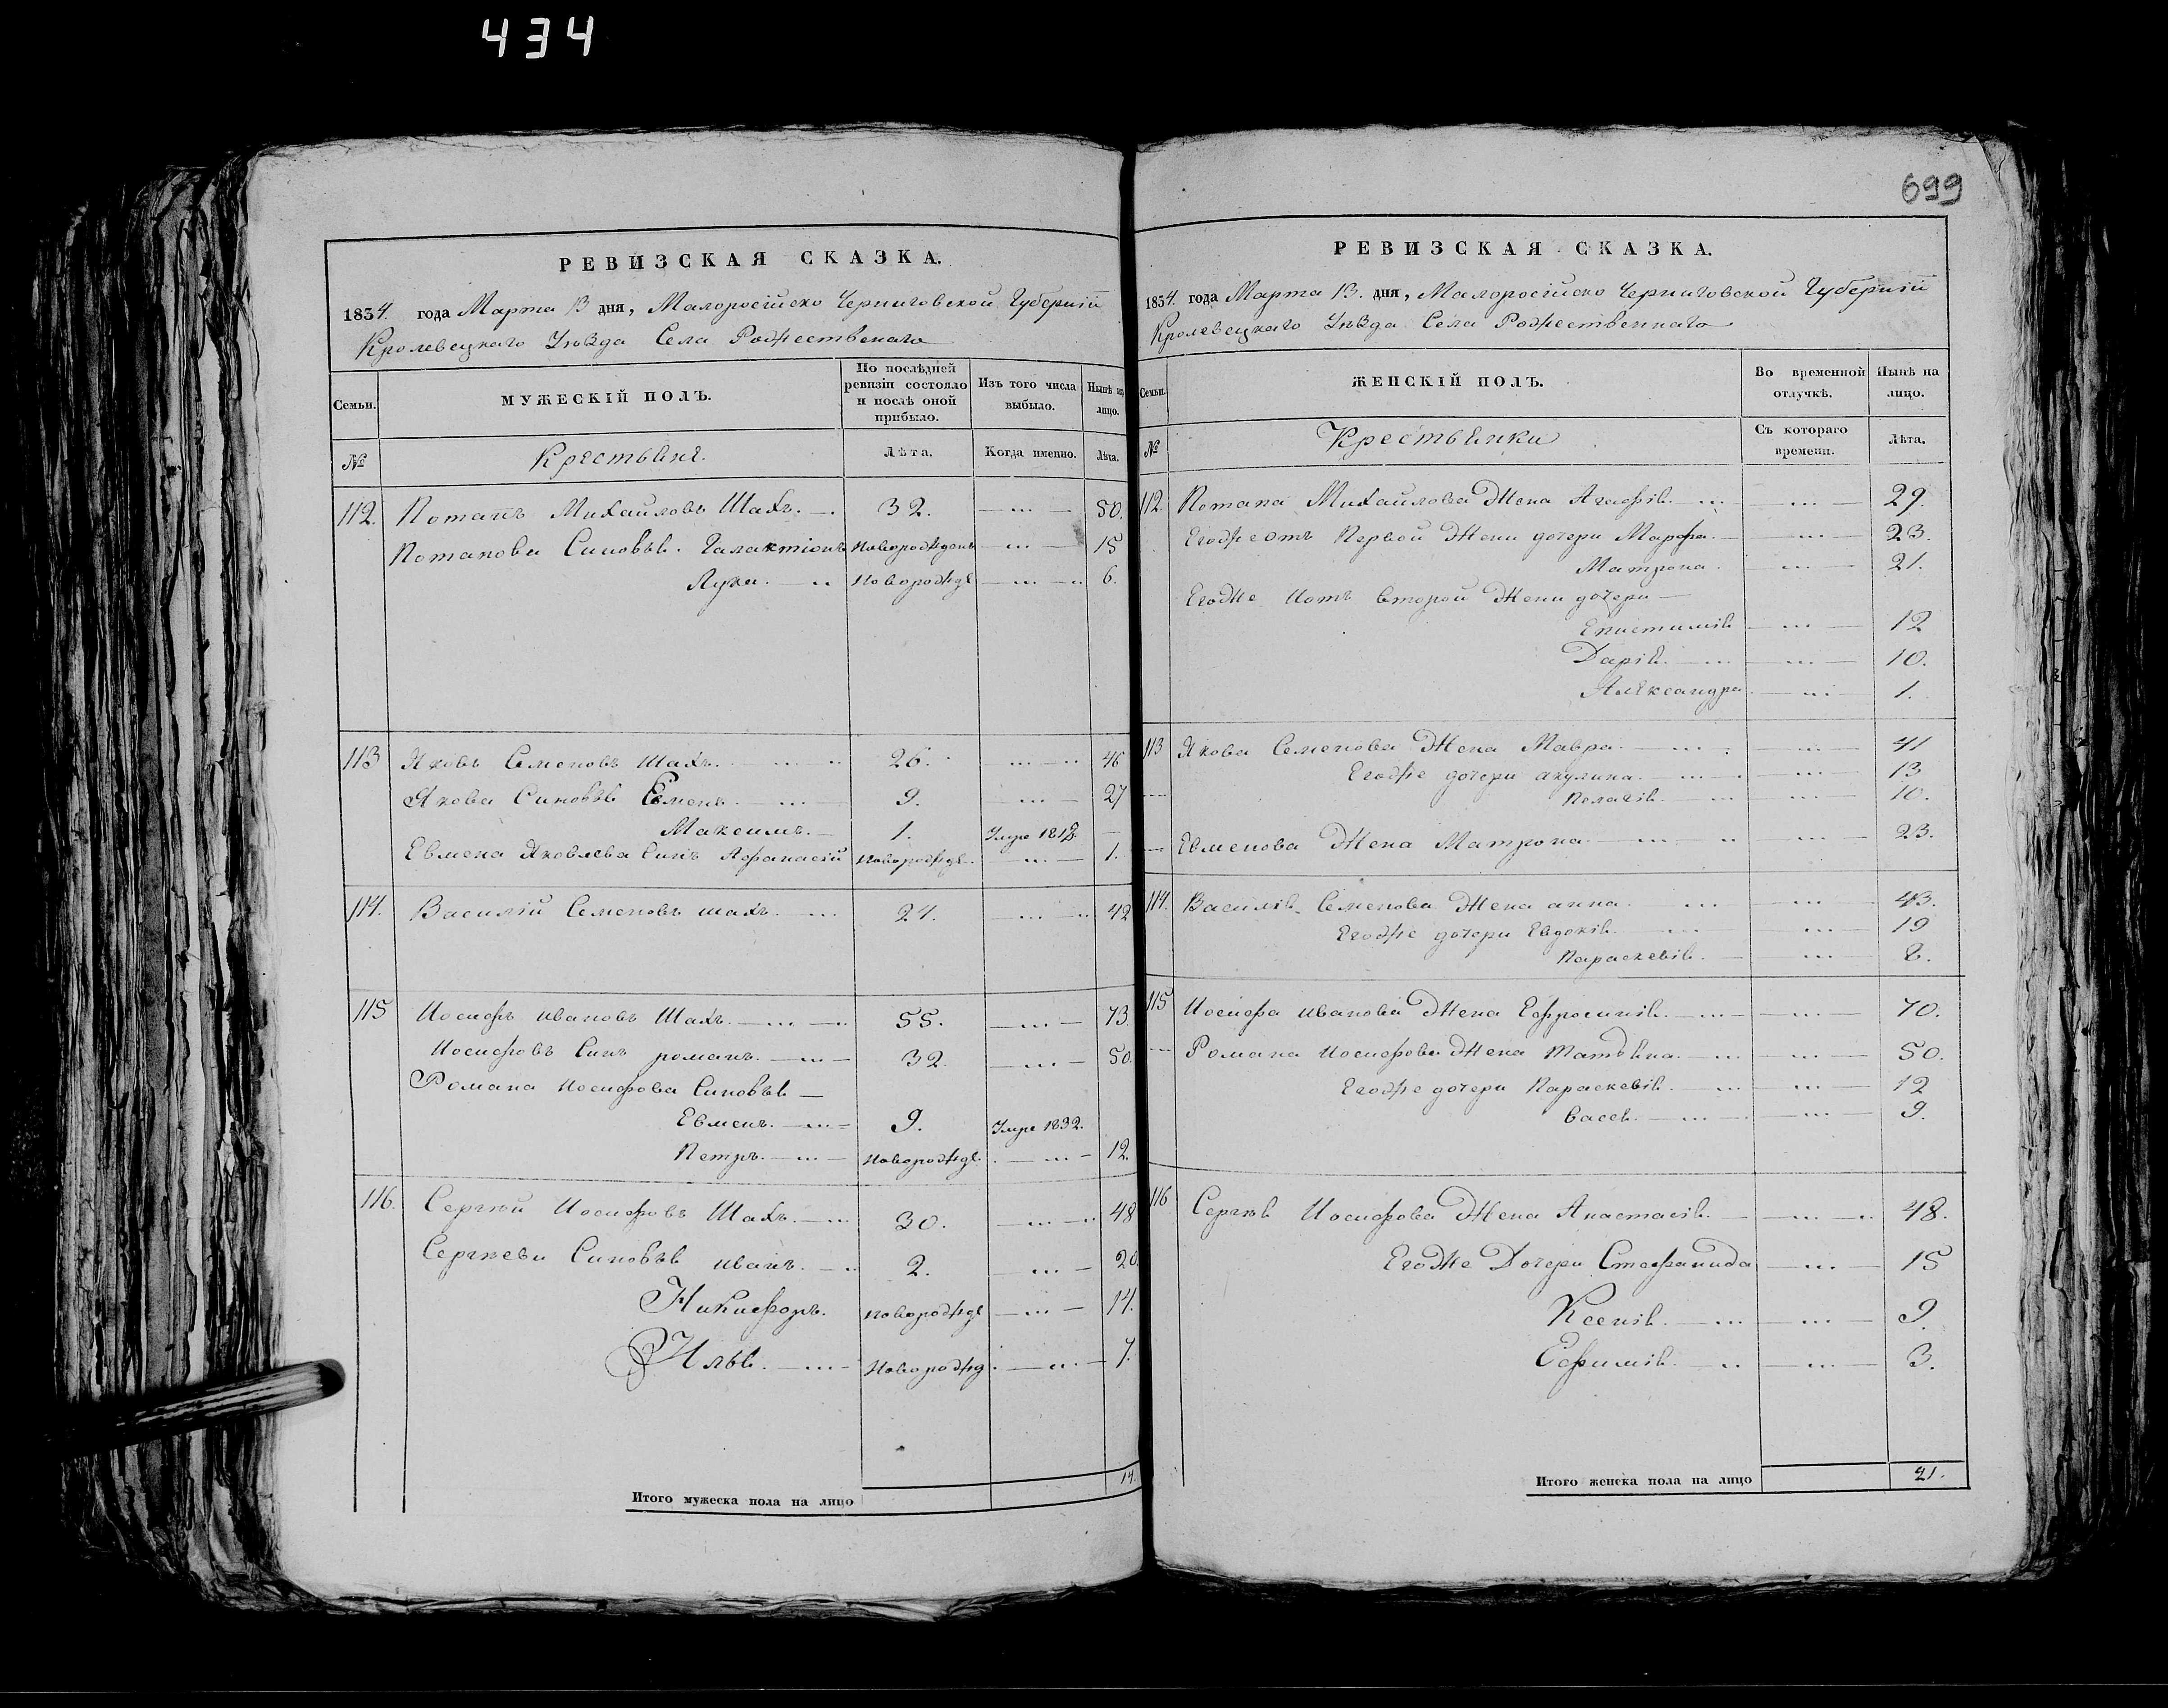 434
РЕВИЗСКАЯ СКАЗКА.
1834. года Марта 13 дня, Малоросійско Черниговской Губерніи
Кролевецкаго Уѣзда Села Рождественаго
Семьи. МУЖЕСКІЙ ПОЛЪ. По послѣдней ревизіи состояло и послѣ оной прибыло. Изъ того числа выбыло. Нынѣ на лицо.
№ Крестьяне. Лѣта. Когда именно. Лѣта.
112. Потапъ Михайловъ Шахъ. 32. 50.
Потапови Синовья. Галактіонъ новорожденъ 15
Лука. новорожде 6.
113 Яковъ Семеновъ Шахъ. 26. 46
Якова Синовья Евменъ 9. 27
Максимъ. 1. Умре 1818.
Евмена Яковлева Синъ Афанасій новорожде. 1.
114. Василій Семеновъ шахъ. 24. 42
115 Иосифъ ивановъ Шахъ. 55. 73
Иосифовъ Синъ романъ. 32. 50.
Романа иосифова Синовья
Евменъ. 9. Умре 1832.
Петръ. новорожде. 12.
116. Сергѣй Иосифовъ Шахъ. 30. 48
Сергѣеви Синовья иванъ. 2. 20
Никифоръ. новорожде 14.
Илья. новорожд. 7.
Итого мужеска пола на лицо 14.
699
РЕВИЗСКАЯ СКАЗКА.
1834. года Марта 13. дня, Малоросійско Черниговской Губерніи
Кролевецкаго Уѣзда Села Рождественнаго
Семьи. ЖЕНСКІЙ ПОЛЪ. Во временной отлучкѣ. Нынѣ на лицо.
№ Крестьянки Съ котораго времени. Лѣта.
112. Потапа Михайлова Жена Агафія. 29.
Егоже отъ Первой Жени дочери Марфа. 23.
Матрона. 21.
Егоже иотъ второй Жени дочери
Епистимія 12
Дарія. 10.
Александра 1.
113 Якова Семенова Жена Мавра. 41
Егоже дочери акулина. 13
Пелагія. 10.
Евменова Жена Матрона. 23.
114. Василія Семенова Жена анна. 43.
Егоже дочери Евдокія. 19
Параскевія. 8.
115 Иосифа иванова Жена Ефросинія. 70.
Романа иосифова Жена татьяна. 50.
Егоже дочери Параскевія. 12
васса. 9.
116 Сергѣя Иосифова Жена Анастасія. 48.
Егоже Дочери Стефанида 15
Ксенія. 9.
Ефимія. 3.
Итого женска пола на лицо 21.